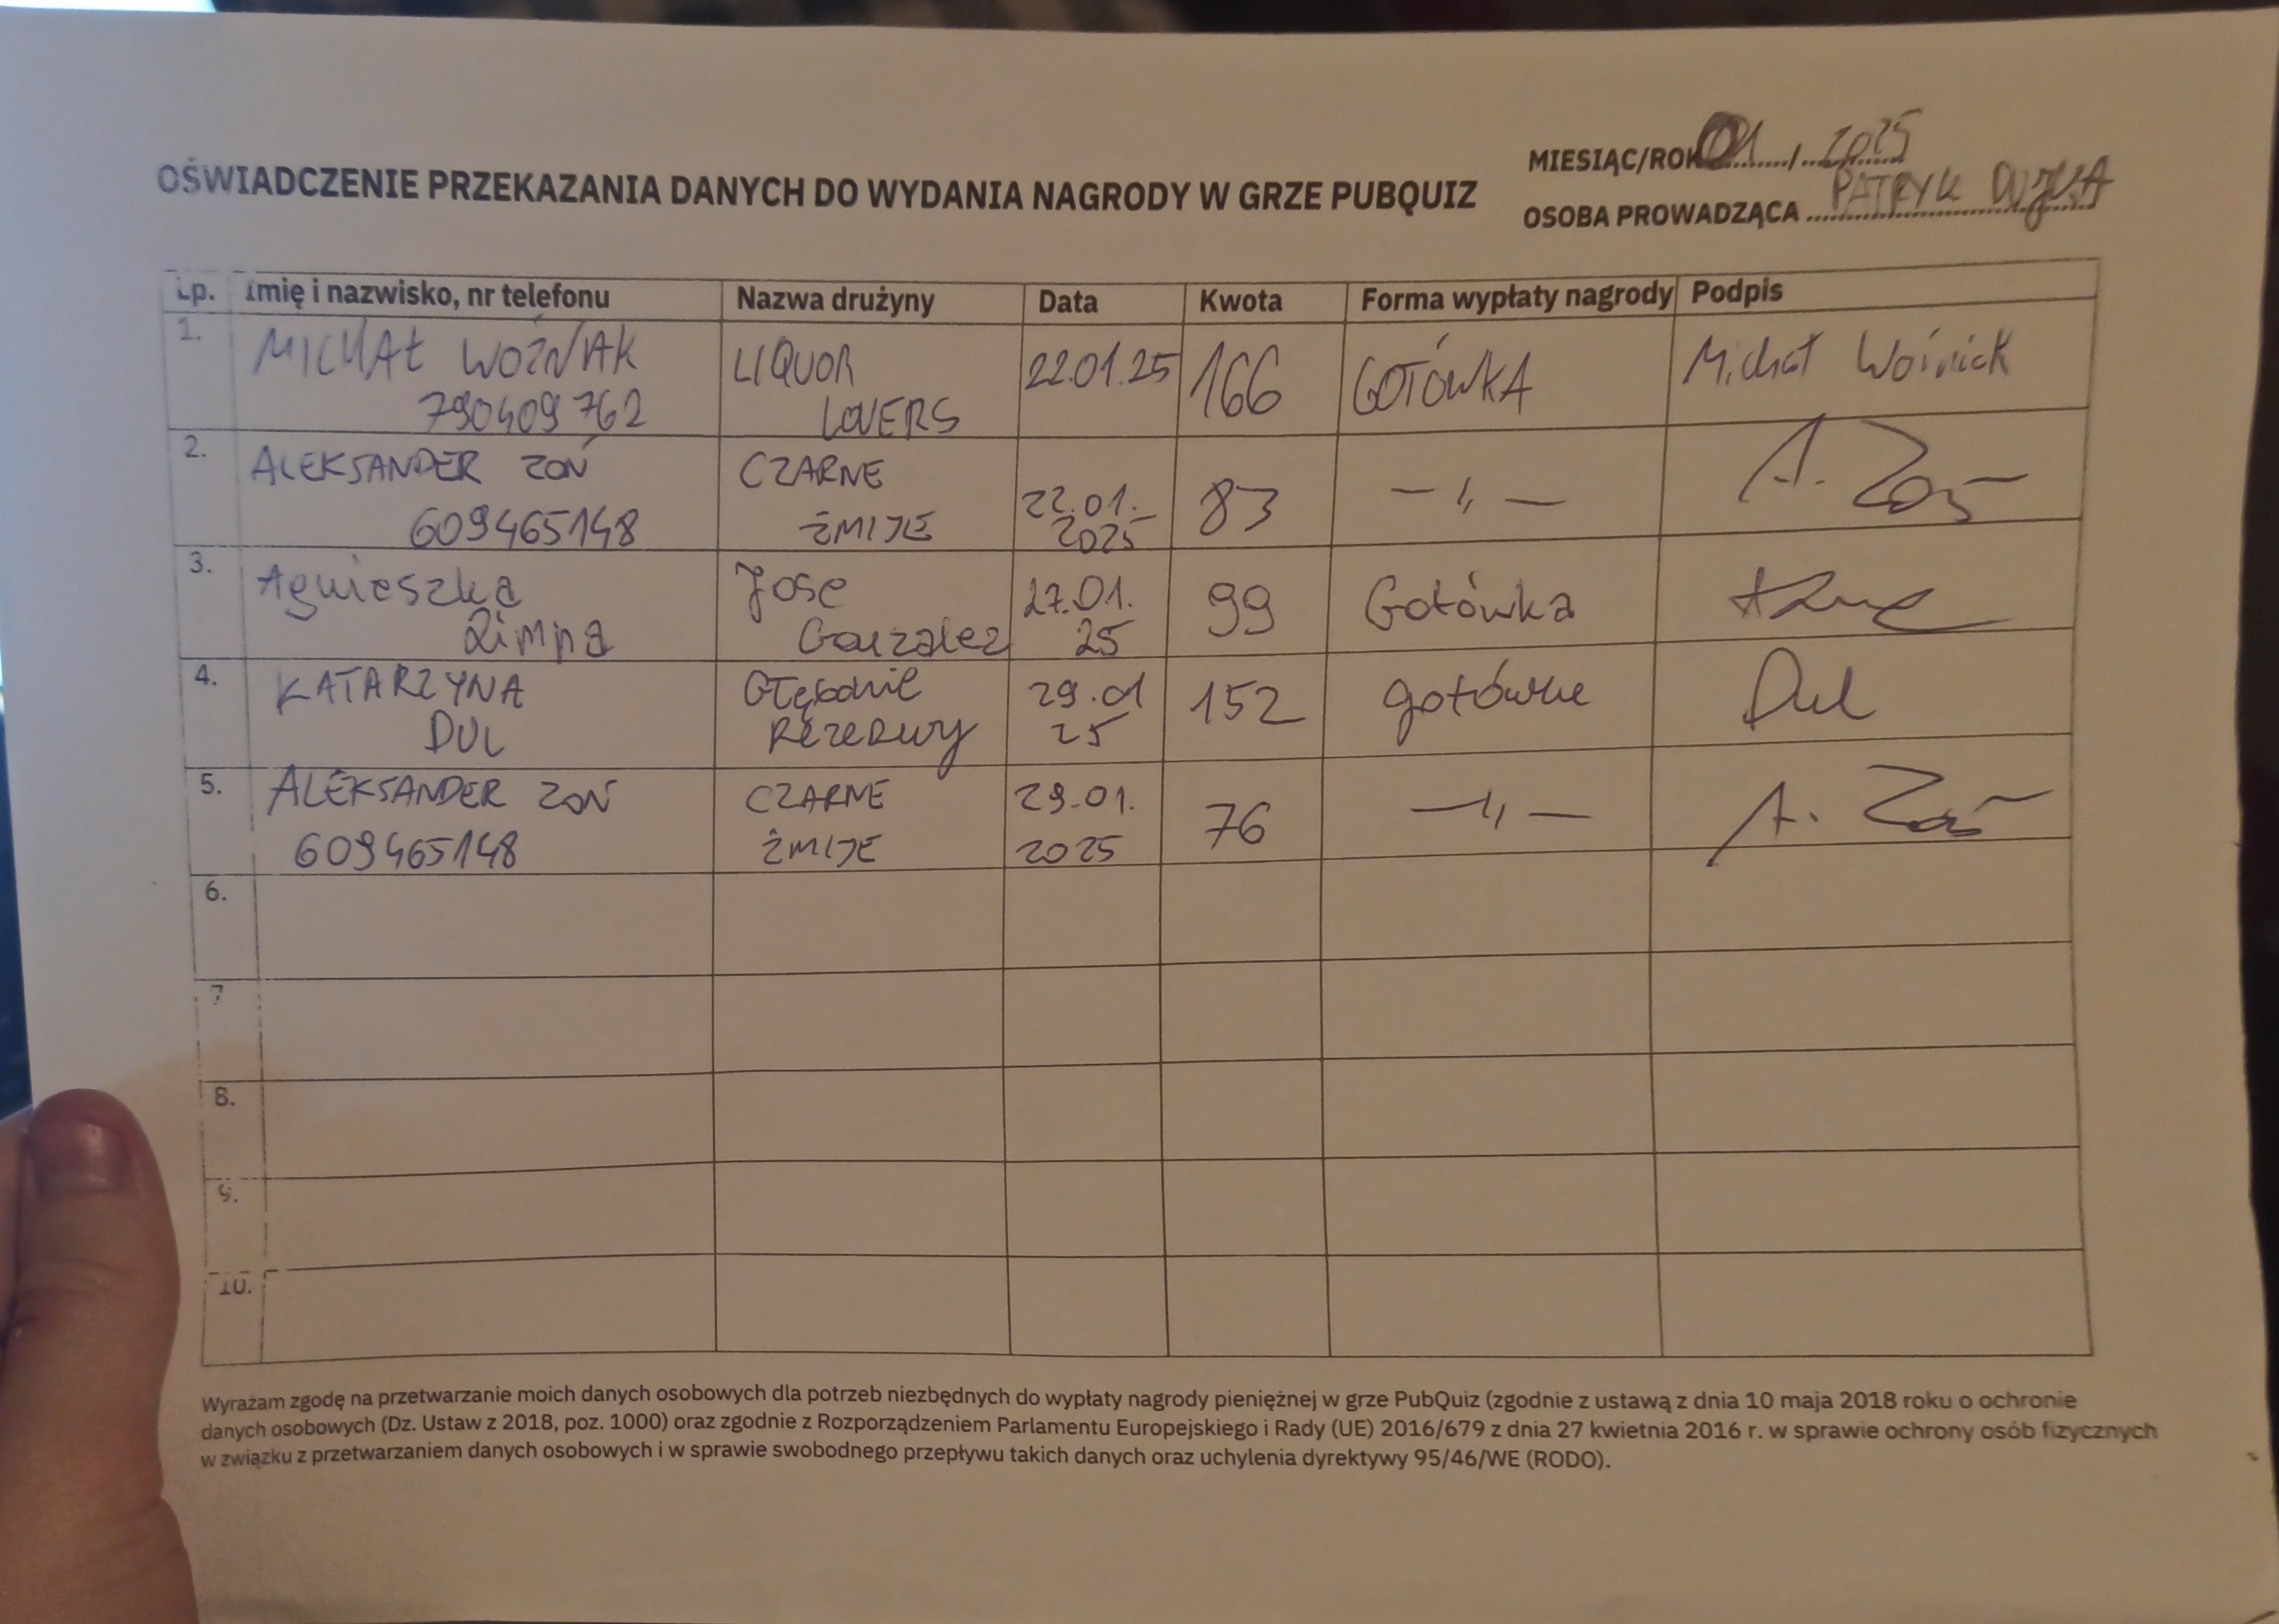 MIESIĄC/ROK 01 / 2025
OŚWIADCZENIE PRZEKAZANIA DANYCH DO WYDANIA NAGRODY W GRZE PUBQUIZ
OSOBA PROWADZĄCA PATRYK
Lp. Imię i nazwisko, nr telefonu Nazwa drużyny Data Kwota Forma wypłaty nagrody Podpis
1. MICHAŁ WOŹNIAK LIQUOR 22.01.25 166 GOTÓWKA Michał Woźniak
790409762 LOVERS
2. ALEKSANDER ZOŃ CZARNE 22.01. 83 —„— A. Zoń
609465148 ŻMIJE 2025
3. Agnieszka Jose 27.01. 99 Gotówka
Zimna Gonzalez 25
4. KATARZYNA Głębokie 29.01 152 gotówka Dul
DUL Rezerwy 25
5. ALEKSANDER ZOŃ CZARNE 29.01. 76 —„— A. Zoń
609465148 ŻMIJE 2025
6.
7
8.
9.
10.
Wyrażam zgodę na przetwarzanie moich danych osobowych dla potrzeb niezbędnych do wypłaty nagrody pieniężnej w grze PubQuiz (zgodnie z ustawą z dnia 10 maja 2018 roku o ochronie
danych osobowych (Dz. Ustaw z 2018, poz. 1000) oraz zgodnie z Rozporządzeniem Parlamentu Europejskiego i Rady (UE) 2016/679 z dnia 27 kwietnia 2016 r. w sprawie ochrony osób fizycznych
w związku z przetwarzaniem danych osobowych i w sprawie swobodnego przepływu takich danych oraz uchylenia dyrektywy 95/46/WE (RODO).